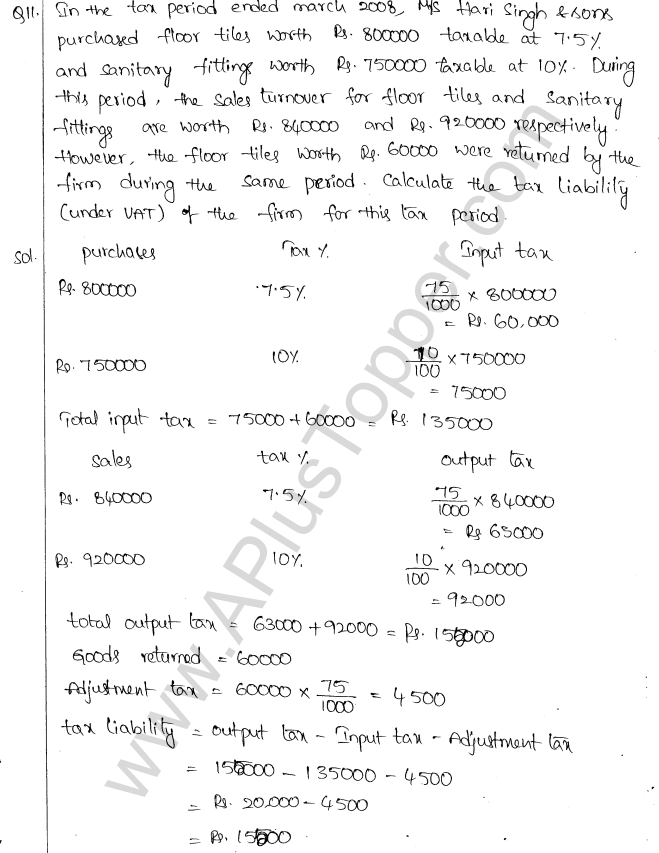 Q11. In the tax period ended march 2008, M/S Hari Singh & sons
purchased floor tiles worth Rs. 800000 taxable at 7.5%
and sanitary fittings worth Rs. 750000 taxable at 10%. During
this period, the sales turnover for floor tiles and sanitary
fittings are worth Rs. 840000 and Rs. 920000 respectively.
However, the floor tiles worth Rs. 60000 were returned by the
firm during the same period. Calculate the tax liability
(under VAT) of the firm for this tax period.
Sol. purchases Tax % Input tax
Rs. 800000 7.5% 75/1000 × 800000
= Rs. 60,000
Rs. 750000 10% 10/100 × 750000
= 75000
Total input tax = 75000 + 60000 = Rs. 135000
sales tax % output tax
Rs. 840000 7.5% 75/1000 × 840000
= Rs 63000
Rs. 920000 10% 10/100 × 920000
= 92000
total output tax = 63000 + 92000 = Rs. 155000
Goods returned = 60000
Adjustment tax = 60000 × 75/1000 = 4500
tax liability = output tax - Input tax - Adjustment tax
= 155000 - 135000 - 4500
= Rs. 20,000 - 4500
= Rs. 15500
www.APlusTopper.com